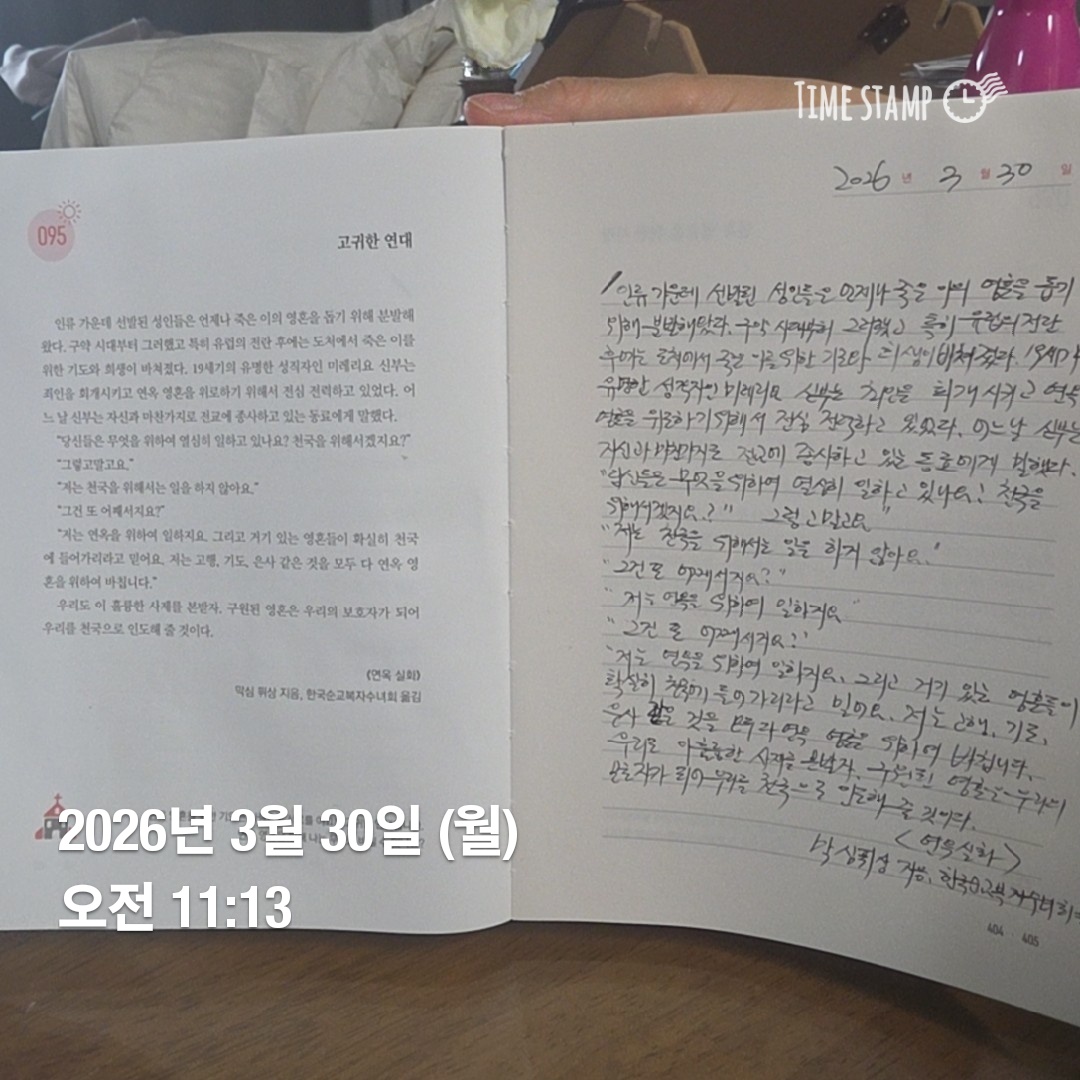 TIME STAMP
095
고귀한 연대
인류 가운데 선발된 성인들은 언제나 죽은 이의 영혼을 돕기 위해 분발해
왔다. 구약 시대부터 그러했고 특히 유럽의 전란 후에는 도처에서 죽은 이를
위한 기도와 희생이 바쳐졌다. 19세기의 유명한 성직자인 미레리요 신부는
죄인을 회개시키고 연옥 영혼을 위로하기 위해서 전심 전력하고 있었다. 어
느 날 신부는 자신과 마찬가지로 전교에 종사하고 있는 동료에게 말했다.
“당신들은 무엇을 위하여 열심히 일하고 있나요? 천국을 위해서겠지요?”
“그렇고말고요.”
“저는 천국을 위해서는 일을 하지 않아요.”
“그건 또 어째서지요?”
“저는 연옥을 위하여 일하지요. 그리고 거기 있는 영혼들이 확실히 천국
에 들어가리라고 믿어요. 저는 고행, 기도, 은사 같은 것을 모두 다 연옥 영
혼을 위하여 바칩니다.”
우리도 이 훌륭한 사제를 본받자. 구원된 영혼은 우리의 보호자가 되어
우리를 천국으로 인도해 줄 것이다.
《연옥 실화》
막심 퓌상 지음, 한국순교복자수녀회 옮김
2026년 3월 30일
인류 가운데 선발된 성인들은 언제나 죽은 이의 영혼을 돕기
위해 분발해왔다. 구약 시대부터 그러했고 특히 유럽의 전란
후에는 도처에서 죽은 이를 위한 기도와 희생이 바쳐졌다. 19세기
유명한 성직자인 미레리요 신부는 죄인을 회개시키고 연옥
영혼을 위로하기 위해서 전심 전력하고 있었다. 어느날 신부는
자신과 마찬가지로 전교에 종사하고 있는 동료에게 말했다.
"당신들은 무엇을 위하여 열심히 일하고 있나요? 천국을
위해서겠지요?" 그렇고말고요"
"저는 천국을 위해서는 일을 하지 않아요."
"그건 또 어째서지요?"
"저는 연옥을 위하여 일하지요"
"그건 또 어째서지요?"
"저는 연옥을 위하여 일하지요. 그리고 거기 있는 영혼들이
확실히 천국에 들어가리라고 믿어요. 저는 고행, 기도,
은사 같은 것을 모두 다 연옥 영혼을 위하여 바칩니다.
우리도 이 훌륭한 사제를 본받자. 구원된 영혼은 우리의
보호자가 되어 우리를 천국으로 인도해 줄 것이다.
<연옥실화>
막심 퓌상 지음, 한국순교복자수녀회
404 405
2026년 3월 30일 (월)
오전 11:13